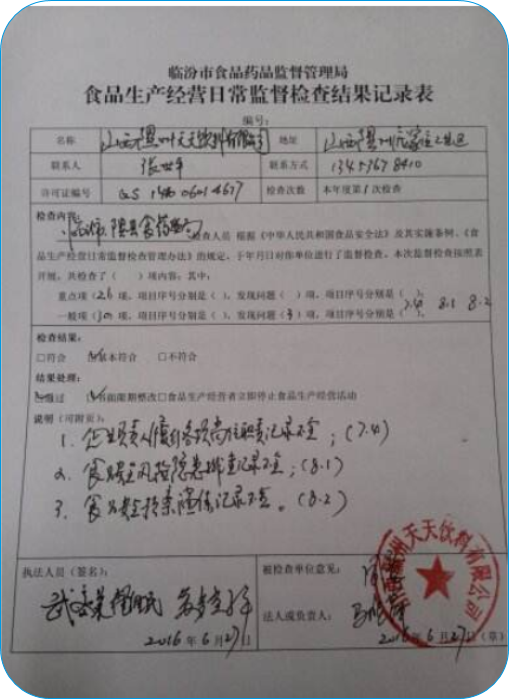 临汾市食品药品监督管理局
食品生产经营日常监督检查结果记录表
编号:
名称 山西隰州天天饮料有限公司 地址 山西隰州
联系人 张世平 联系方式 13457678410
许可证编号 QS 1400 0601 4677 检查次数 本年度第1次检查
检查内容:
临汾市隰县食药监局检查人员 根据《中华人民共和国食品安全法》及其实施条例、《食
品生产经营日常监督检查管理办法》的规定,于年月日对你单位进行了监督检查。本次监督检查按照表
开展,共检查了( )项内容;其中:
重点项(26)项,项目序号分别是( ),发现问题( )项,项目序号分别是( );
一般项(30)项,项目序号分别是( ),发现问题(3)项,项目序号分别是( 7.4 8.1 8.2 ),
检查结果:
□符合 ☑基本符合 □不符合
结果处理:
☑通过 ☑书面限期整改□食品生产经营者立即停止食品生产经营活动
说明(可附页):
1. 企业负责人履行各项岗位职责记录不全;(7.4)
2. 食品安全风险隐患排查记录不全;(8.1)
3. 食品安全档案记录不全。(8.2)
执法人员(签名): 被检查单位意见:
法人或负责人:
2016年6月27日 2016年6月27日(章)
天天饮料有限公司